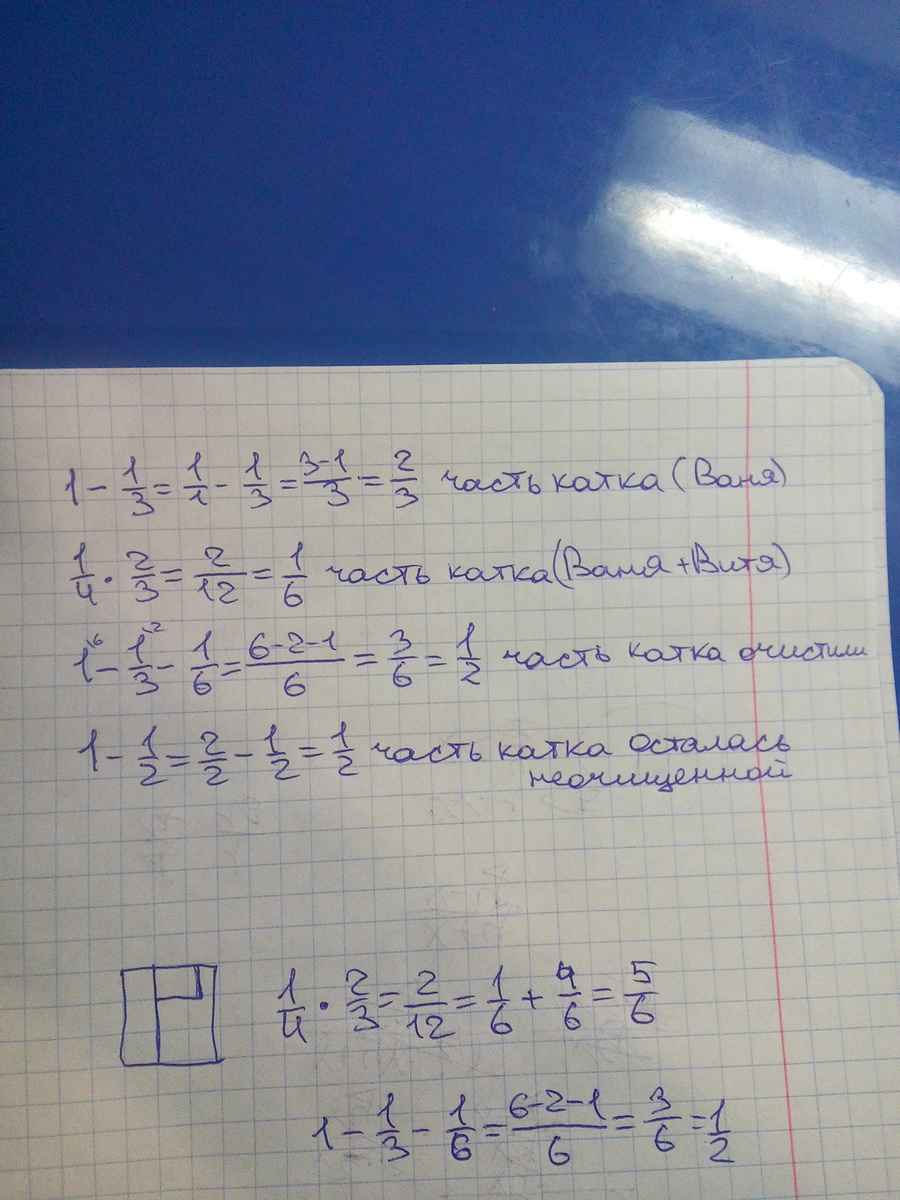 1 - 1/3 = 1/1 - 1/3 = 3-1/3 = 2/3 часть катка (Ваня)
1/4 · 2/3 = 2/12 = 1/6 часть катка (Ваня + Витя)
1^6 - 1^2/3 - 1/6 = 6-2-1/6 = 3/6 = 1/2 часть катка очистили
1 - 1/2 = 2/2 - 1/2 = 1/2 часть катка осталась
неочищенной
1/4 · 2/3 = 2/12 = 1/6 + 4/6 = 5/6
1 - 1/3 - 1/6 = 6-2-1/6 = 3/6 = 1/2